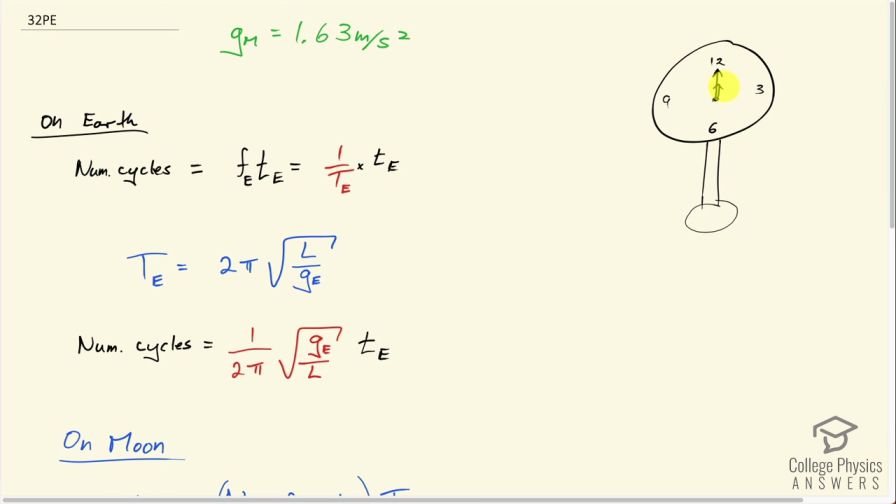 32PE
g_M = 1.63 m/s²
On Earth
Num. cycles = f_E t_E = 1/T_E × t_E
T_E = 2π √(L/g_E)
Num. cycles = 1/2π √(g_E/L) t_E
On Moon
12
9
3
6
College Physics
ANSWERS